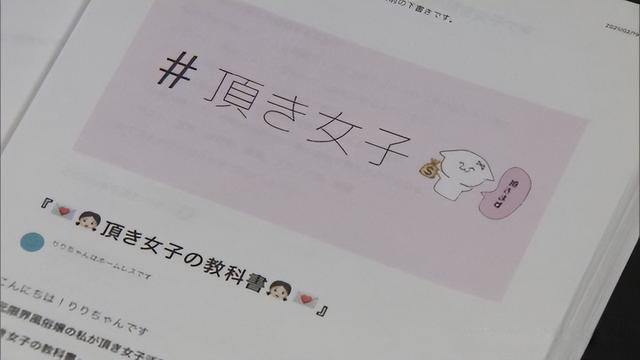 の下書きです。
#頂き女子
『💌👧頂き女子の教科書👧💌』
りりちゃんはホームレスです
こんにちは!りりちゃんです
限界風俗嬢の私が頂き女子
き女子の教科書